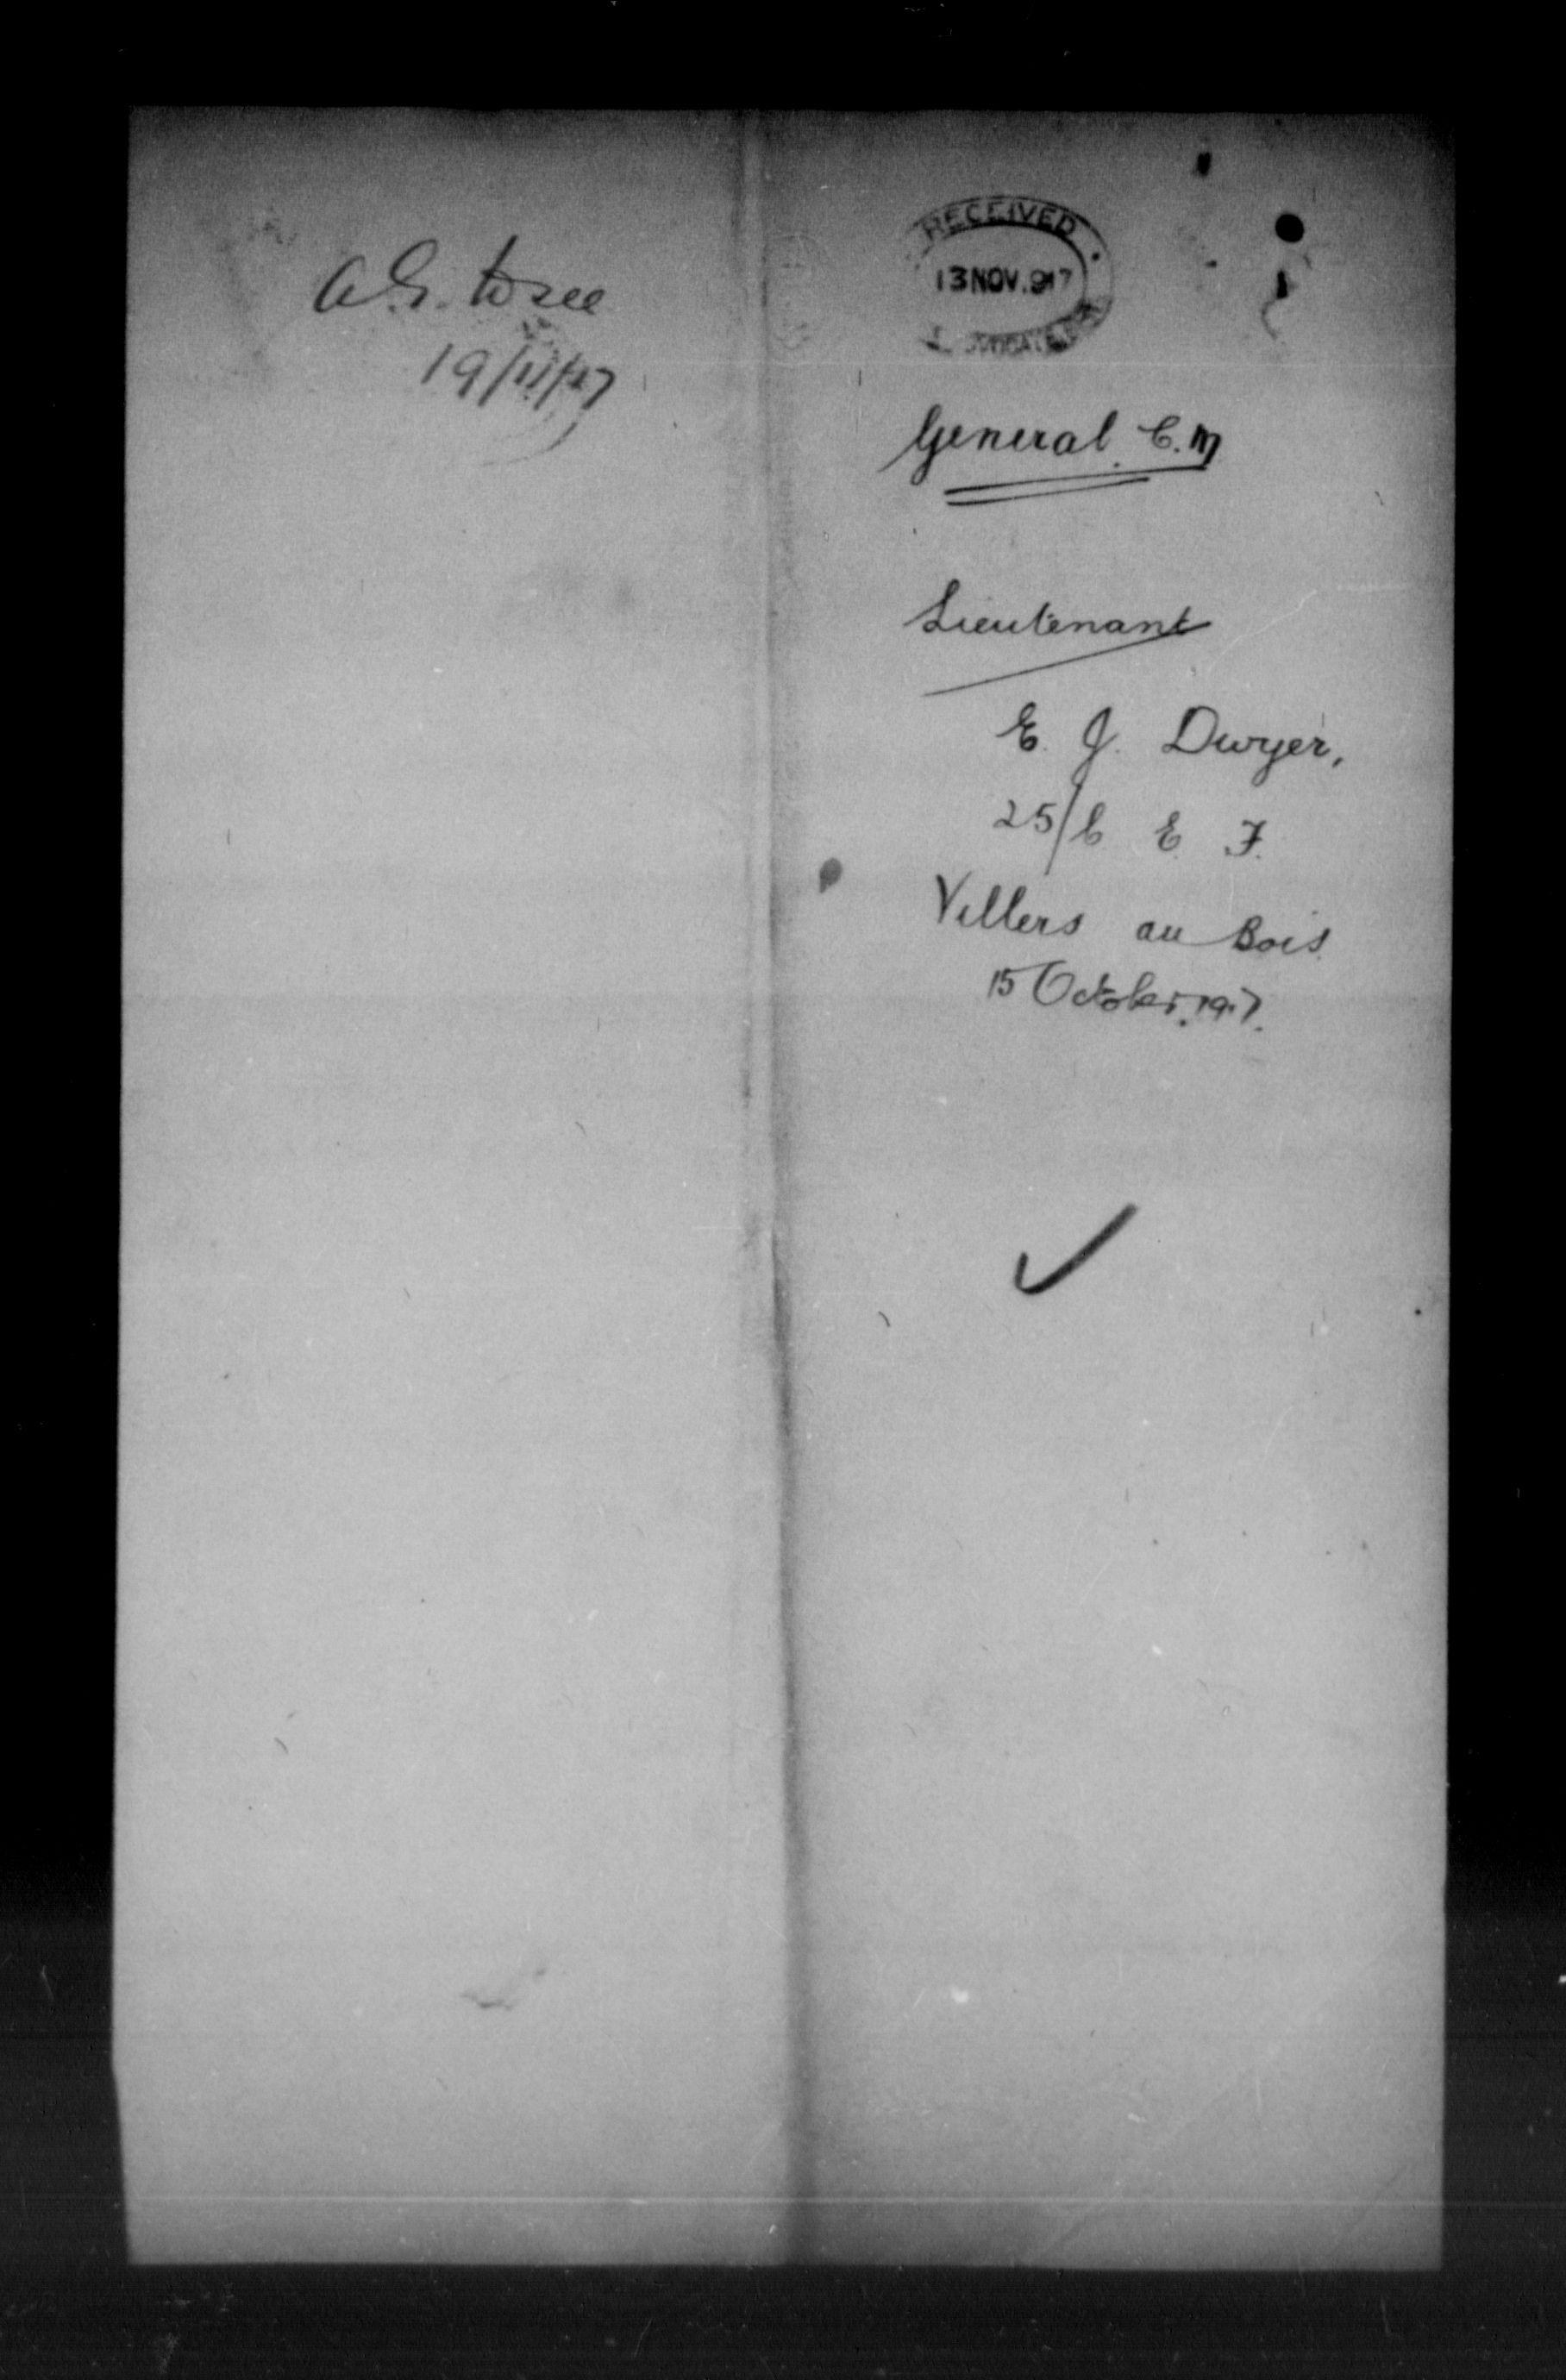 A.G. to see
19/11/17
RECEIVED
13 NOV. 917
General C.M
Lieutenant
E. J. Dwyer,
25/C E. F.
Villers au Bois
15 October. 1917.